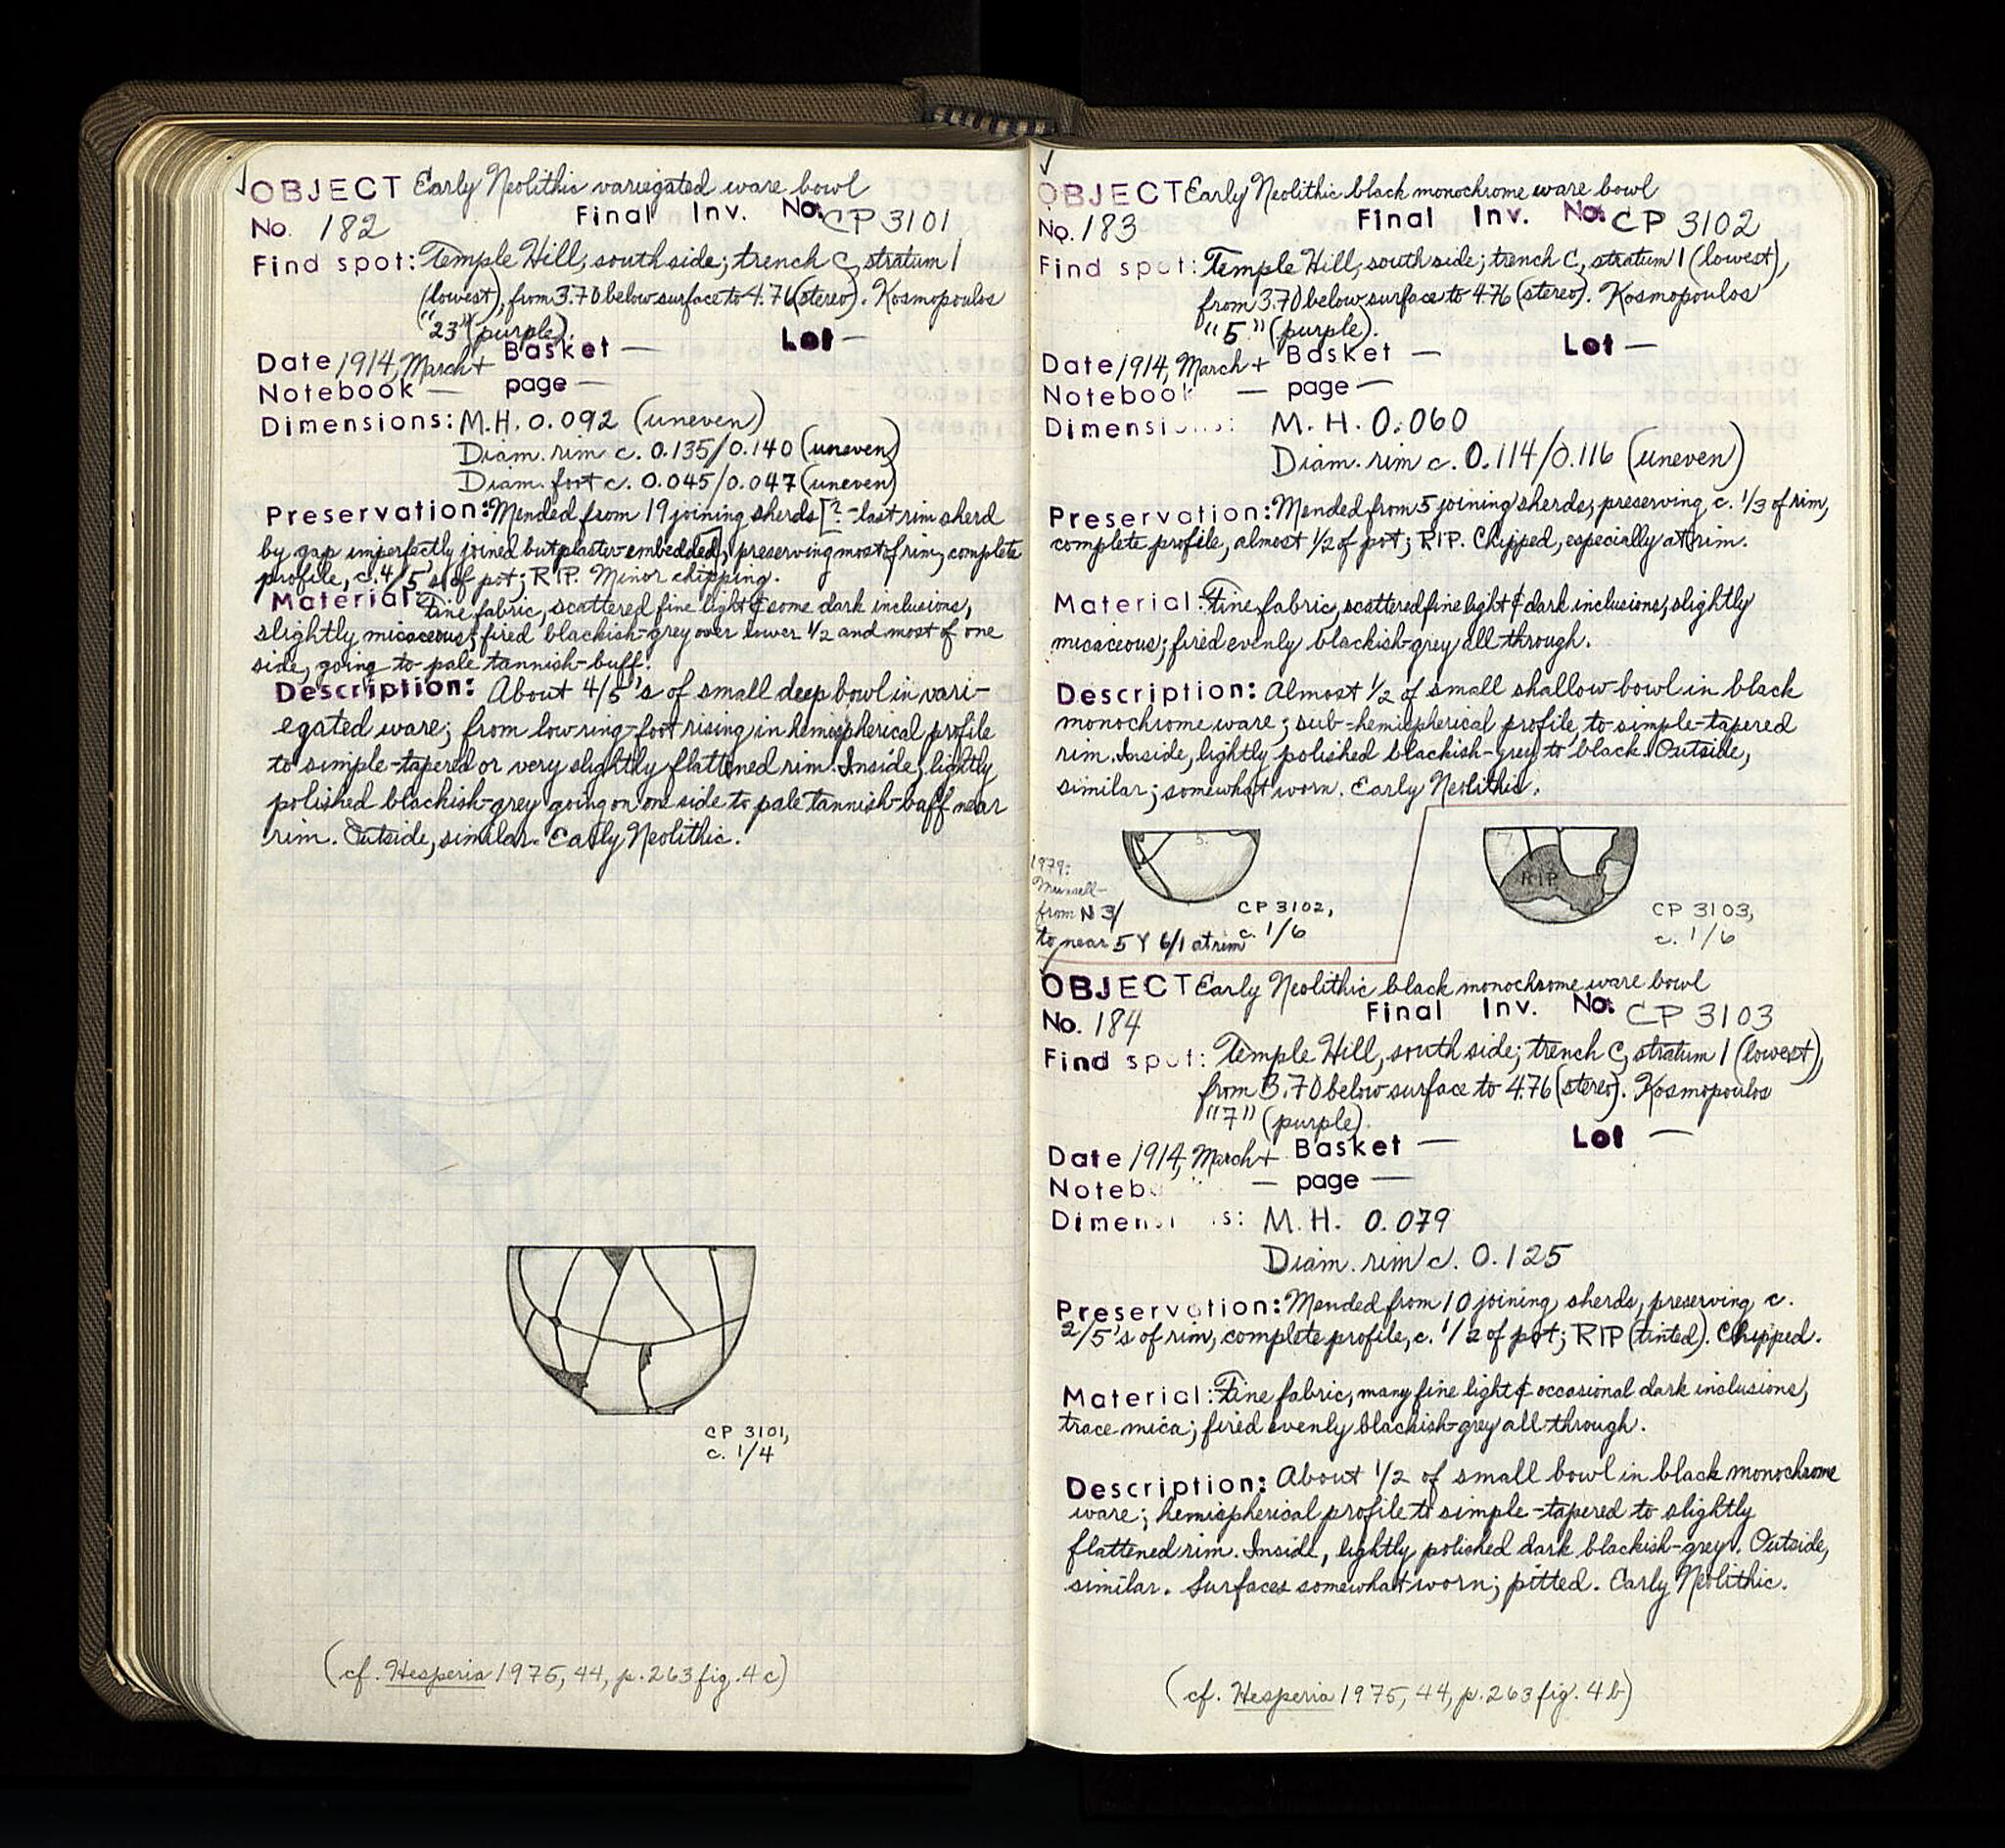 ✓
OBJECT Early Neolithic variegated ware bowl
No. 182 Final Inv. No. CP 3101
Find spot: Temple Hill, south side; trench C, stratum 1
(lowest), from 3.70 below surface to 4.76 (stereo). Kosmopoulos
"23" (purple).
Date 1914, March+ Basket — Lot —
Notebook — page —
Dimensions: M.H. 0.092 (uneven)
Diam. rim c. 0.135/0.140 (uneven)
Diam. foot c. 0.045/0.047 (uneven)
Preservation: Mended from 19 joining sherds [? - last rim sherd
by gap imperfectly joined but plaster-embedded], preserving most of rim, complete
profile, c. 4/5's of pot; RIP. Minor chipping.
Material: Fine fabric, scattered fine light & some dark inclusions,
slightly micaceous; fired blackish-grey over lower 1/2 and most of one
side, going to pale tannish-buff.
Description: About 4/5's of small deep bowl in vari-
egated ware; from low ring-foot rising in hemispherical profile
to simple-tapered or very slightly flattened rim. Inside, lightly
polished blackish-grey going on one side to pale tannish-buff near
rim. Outside, similar. Early Neolithic.
CP 3101,
c. 1/4
(cf. Hesperia 1975, 44, p. 263 fig. 4c)
✓
OBJECT Early Neolithic black monochrome ware bowl
No. 183 Final Inv. No. CP 3102
Find spot: Temple Hill, south side; trench C, stratum 1 (lowest),
from 3.70 below surface to 4.76 (stereo). Kosmopoulos
"5" (purple).
Date 1914, March + Basket — Lot —
Notebook — page —
Dimensions: M. H. 0.060
Diam. rim c. 0.114/0.116 (uneven)
Preservation: Mended from 5 joining sherds, preserving c. 1/3 of rim,
complete profile, almost 1/2 of pot; RIP. Chipped, especially at rim.
Material: Fine fabric, scattered fine light & dark inclusions, slightly
micaceous; fired evenly blackish-grey all through.
Description: Almost 1/2 of small shallow bowl in black
monochrome ware; sub-hemispherical profile to simple-tapered
rim. Inside, lightly polished blackish-grey to black. Outside,
similar; somewhat worn. Early Neolithic.
5.
1979:
Munsell-
from N 3/
to near 5Y 6/1 at rim
CP 3102,
c. 1/6
7.
RIP
CP 3103,
c. 1/6
✓
OBJECT Early Neolithic black monochrome ware bowl
No. 184 Final Inv. No. CP 3103
Find spot: Temple Hill, south side; trench C, stratum 1 (lowest),
from 3.70 below surface to 4.76 (stereo). Kosmopoulos
"7" (purple).
Date 1914, March + Basket — Lot —
Noteb — page —
Dimensions: M.H. 0.079
Diam. rim c. 0.125
Preservation: Mended from 10 joining sherds, preserving c.
2/5's of rim, complete profile, c. 1/2 of pot; RIP (tinted). Chipped.
Material: Fine fabric, many fine light & occasional dark inclusions,
trace mica; fired evenly blackish-grey all through.
Description: About 1/2 of small bowl in black monochrome
ware; hemispherical profile to simple-tapered to slightly
flattened rim. Inside, lightly polished dark blackish-grey. Outside,
similar. Surfaces somewhat worn; pitted. Early Neolithic.
(cf. Hesperia 1975, 44, p. 263 fig. 4b)